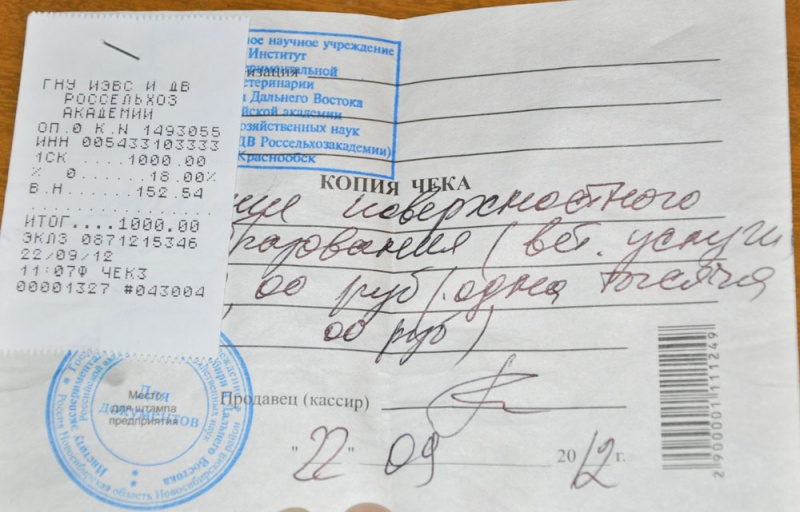 ГНУ ИЭВС И ДВ
РОССЕЛЬХОЗ
АКАДЕМИИ
ОП.0 К.N 1493055
ИНН 005433103333
1СК ....1000.00
% 0......18.00%
В.Н.......152.54
ИТОГ....1000.00
ЭКЛЗ 0871215346
22/09/12
11:07Ф ЧЕК3
00001327 #043004
ное научное учреждение
Институт
ериментальной
етеринарии
и Дальнего Востока
ийской академии
озяйственных наук
ДВ Россельхозакадемии)
Краснообск
изация
КОПИЯ ЧЕКА
ние поверхностного
бразования (вет. услуги
, 00 руб (одна тысяча
00 руб)
Место
для штампа
предприятия
Для
документов
Продавец (кассир)
"22" 09 2012 г.
2 900001 111249